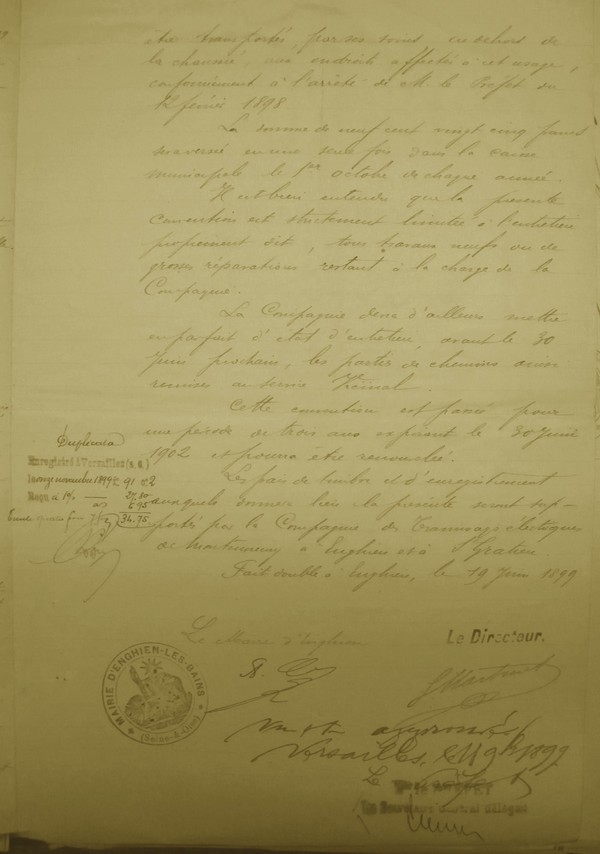 être transportés, par ses soins, en dehors de
la chaussée, aux endroits affectés à cet usage,
conformément à l'arrêté de M. le Préfet du
12 février 1898
La somme de neuf cent vingt cinq francs
sera versée en une seule fois dans la caisse
municipale le 1er octobre de chaque année.
Il est bien entendu que la présente
convention est strictement limitée à l'entretien
proprement dit, tous travaux neufs ou de
grosses réparations restant à la charge de la
Compagnie.
La Compagnie devra d'ailleurs mettre
en parfait état d'entretien, avant le 30
Juin prochain, les parties de chemins
remises au service Vicinal.
Cette convention est passée pour
une période de trois ans expirant le 30 Juin
1902 et pourra être renouvelée.
Les frais de timbre et d'enregistrement
auxquels donnera lieu la présente seront sup-
portés par la Compagnie des Tramways électriques
de Montmorency à Enghien et à St Gratien.
Fait double à Enghien, le 19 Juin 1899
Duplicata
Enregistré à Versailles (a.a.)
novembre 1899
Reçu à
34.75
Le Maire d'Enghien
Le Directeur.
MAIRIE D'ENGHIEN-LES-BAINS
(Seine-&-Oise)
Vu et approuvé
Versailles, le 9bre 1899
Le
Le Secrétaire Général Délégué